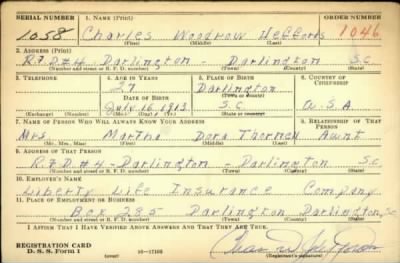 SERIAL NUMBER 1. NAME (Print) ORDER NUMBER
1058 Charles Woodrow Jeffords 1046
(First) (Middle) (Last)
2. ADDRESS (Print)
R.F.D #4 - Darlington - Darlington S.C.
(Number and street or R. F. D. number) (Town) (County) (State)
3. TELEPHONE 4. AGE IN YEARS 5. PLACE OF BIRTH 6. COUNTRY OF CITIZENSHIP
27 Darlington
DATE OF BIRTH (Town or county)
July 16, 1913 S.C. U.S.A.
(Exchange) (Number) (Mo.) (Day) (Yr.) (State or country)
7. NAME OF PERSON WHO WILL ALWAYS KNOW YOUR ADDRESS 8. RELATIONSHIP OF THAT PERSON
Mrs. Martha Dora Aunt
(Mr., Mrs., Miss) (First) (Middle) (Last)
9. ADDRESS OF THAT PERSON
R.F.D #4 - Darlington - Darlington S.C.
(Number and street or R. F. D. number) (Town) (County) (State)
10. EMPLOYER'S NAME
Liberty Life Insurance Company
11. PLACE OF EMPLOYMENT OR BUSINESS
Box 285 Darlington Darlington, S.C.
(Number and street or R. F. D. number) (Town) (County) (State)
I AFFIRM THAT I HAVE VERIFIED ABOVE ANSWERS AND THAT THEY ARE TRUE.
REGISTRATION CARD
D. S. S. Form 1 (over) 16-17105 (Registrant's signature)